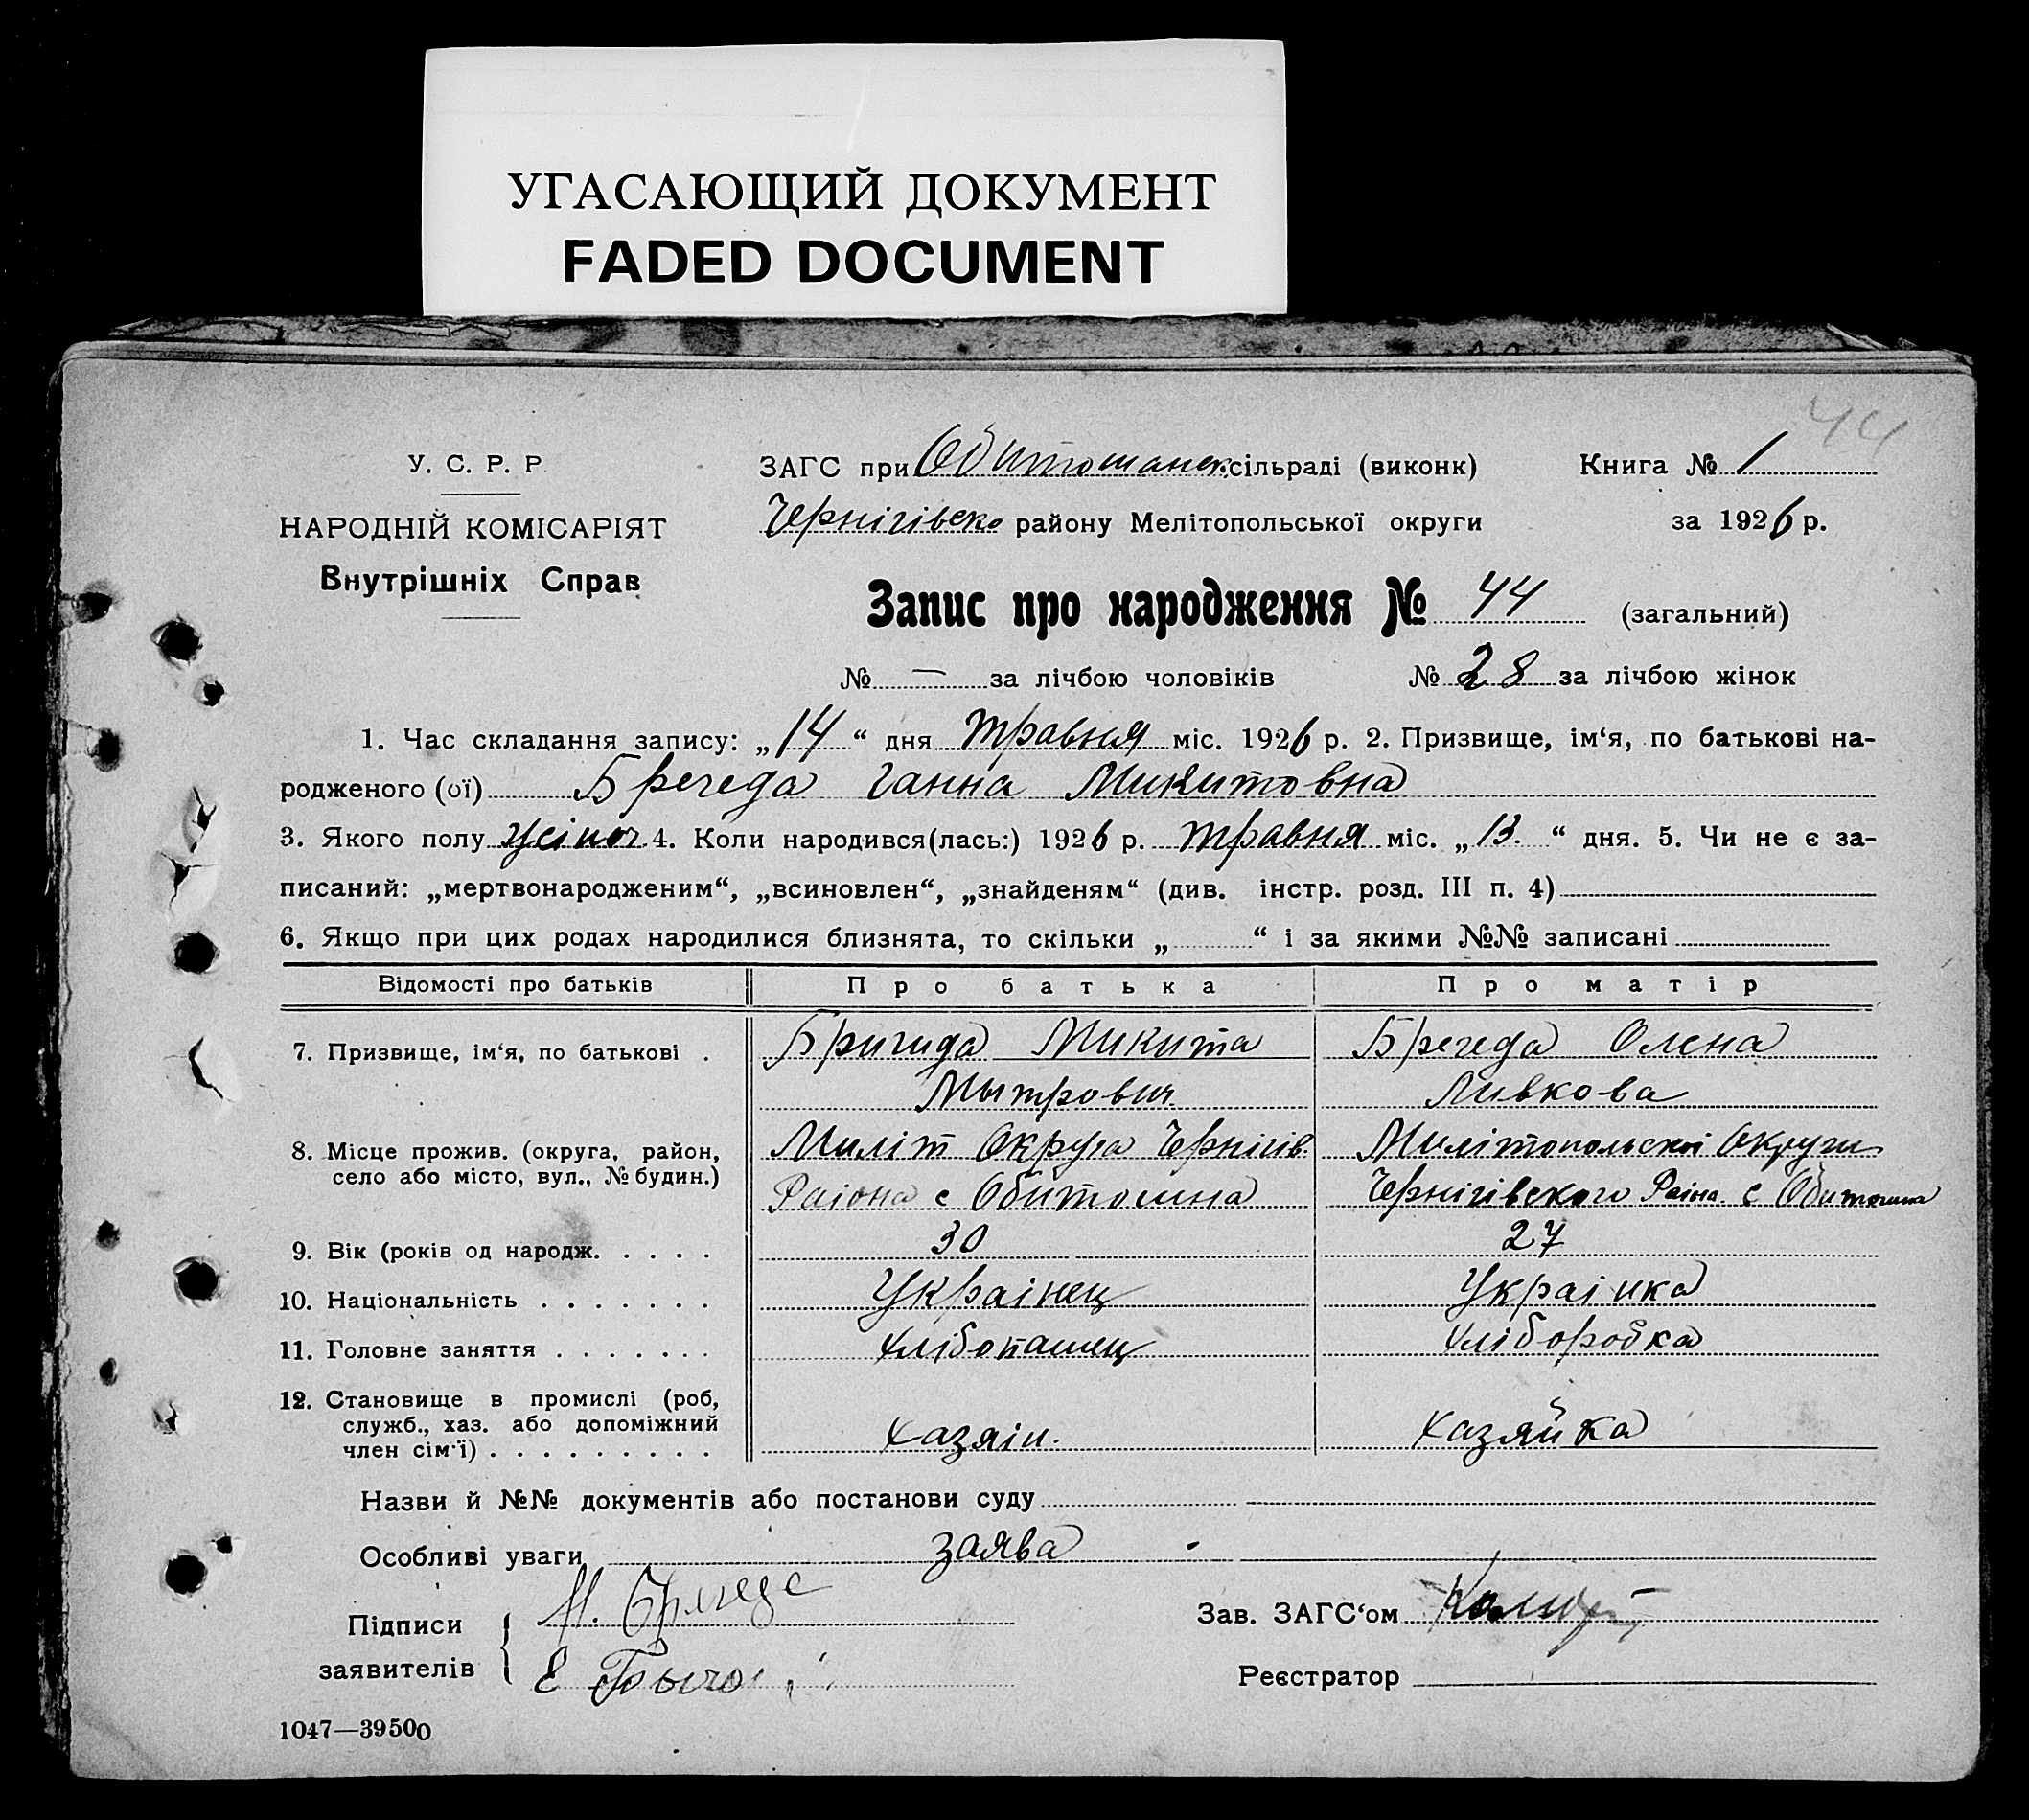 УГАСАЮЩИЙ ДОКУМЕНТ
FADED DOCUMENT
44
У. С. Р. Р
ЗАГС при Обитошанск. сільраді (виконк)
Книга № 1
НАРОДНІЙ КОМІСАРІЯТ
Чернігівсько району Мелітопольської округи
за 1926 р.
Внутрішніх Справ
Запис про народження № 44 (загальний)
№ — за лічбою чоловіків № 28 за лічбою жінок
1. Час складання запису: „14“ дня травня міс. 1926 р. 2. Призвище, ім‘я, по батькові на-
родженого (ої) Брегеда Ганна Микитовна
3. Якого полу жіноч. 4. Коли народився(лась:) 1926 р. травня міс. „13.“ дня. 5. Чи не є за-
писаний: „мертвонародженим“, „всиновлен“, „знайденям“ (див. інстр. розд. III п. 4)
6. Якщо при цих родах народилися близнята, то скільки „ “ і за якими №№ записані
Відомості про батьків Про батька Про матір
7. Призвище, ім‘я, по батькові . Бригида Микита Брегеда Олена
Мытрович Ливкова
8. Місце прожив. (округа, район, село або місто, вул., № будин.) Миліт Округа Чернігів. Милітопольскоі Округи
Раіона с Обиточна Чернігівского Раіна с Обиточна
9. Вік (років од народж. . . . . 30 27
10. Національність . . . . . . . Украінец Украінка
11. Головне заняття . . . . . . . Хлібопашец Хліборобка
12. Становище в промислі (роб,
служб., хаз. або допоміжний
член сім‘ї) . . . . . . . . . Хазяін. Хазяйка
Назви й №№ документів або постанови суду
Особливі уваги заява
Підписи
заявителів
М. Брегеде
Е
Зав. ЗАГС‘ом
Реєстратор
1047—39500